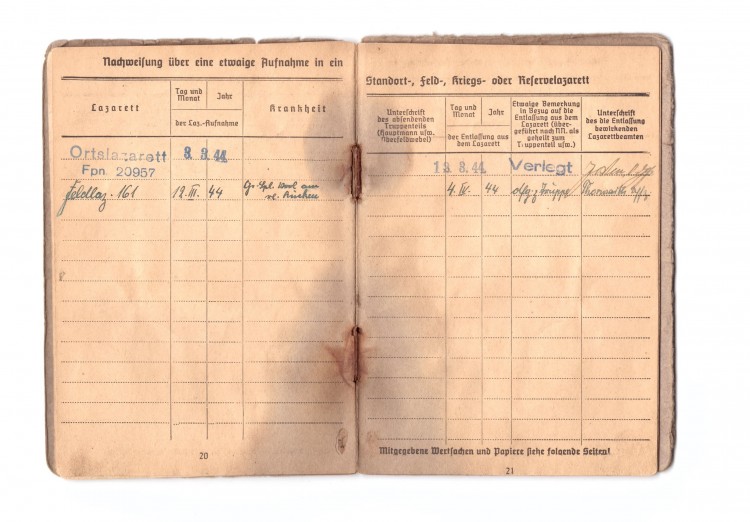 Nachweisung über eine etwaige Aufnahme in ein
Lazarett
Tag und Monat
Jahr
der Laz.-Aufnahme
Krankheit
Ortslazarett
Fpn. 20957
8. 3. 44
Feldlaz. 161
12. III. 44
Gr. Spl. am
Rücken
20
Standort-, Feld-, Kriegs- oder Reservelazarett
Unterschrift
des absendenden
Truppenteils
(Hauptmann usw.
Oberfeldwebel)
Tag und Monat
Jahr
der Entlassung aus
dem Lazarett
Etwaige Bemerkung
in Bezug auf die
Entlassung aus dem
Lazarett (über-
geführt nach NN. als
geheilt zum
Truppenteil usw.)
Unterschrift
des die Entlassung
bewirkenden
Lazarettbeamten
44
Verlegt
4. IV. 44
Truppe
Mitgegebene Wertsachen und Papiere siehe folgende Seiten!
21